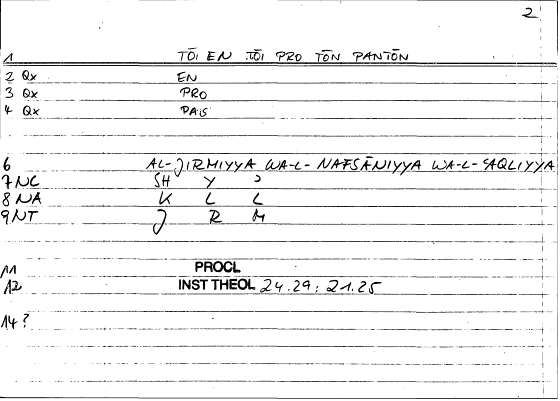 2
1 TŌI EN TŌI PRO TŌN PANTŌN
2 Qx EN
3 Qx PRO
4 Qx PAIS
6 AL-JIRMIYYA WA-L-NAFSĀNIYYA WA-L-ʿAQLIYYA
7 NC SH Y ʾ
8 NA K L L
9 NT J R M
11 PROCL
12 INST THEOL 24.29: 21.25
14 ?